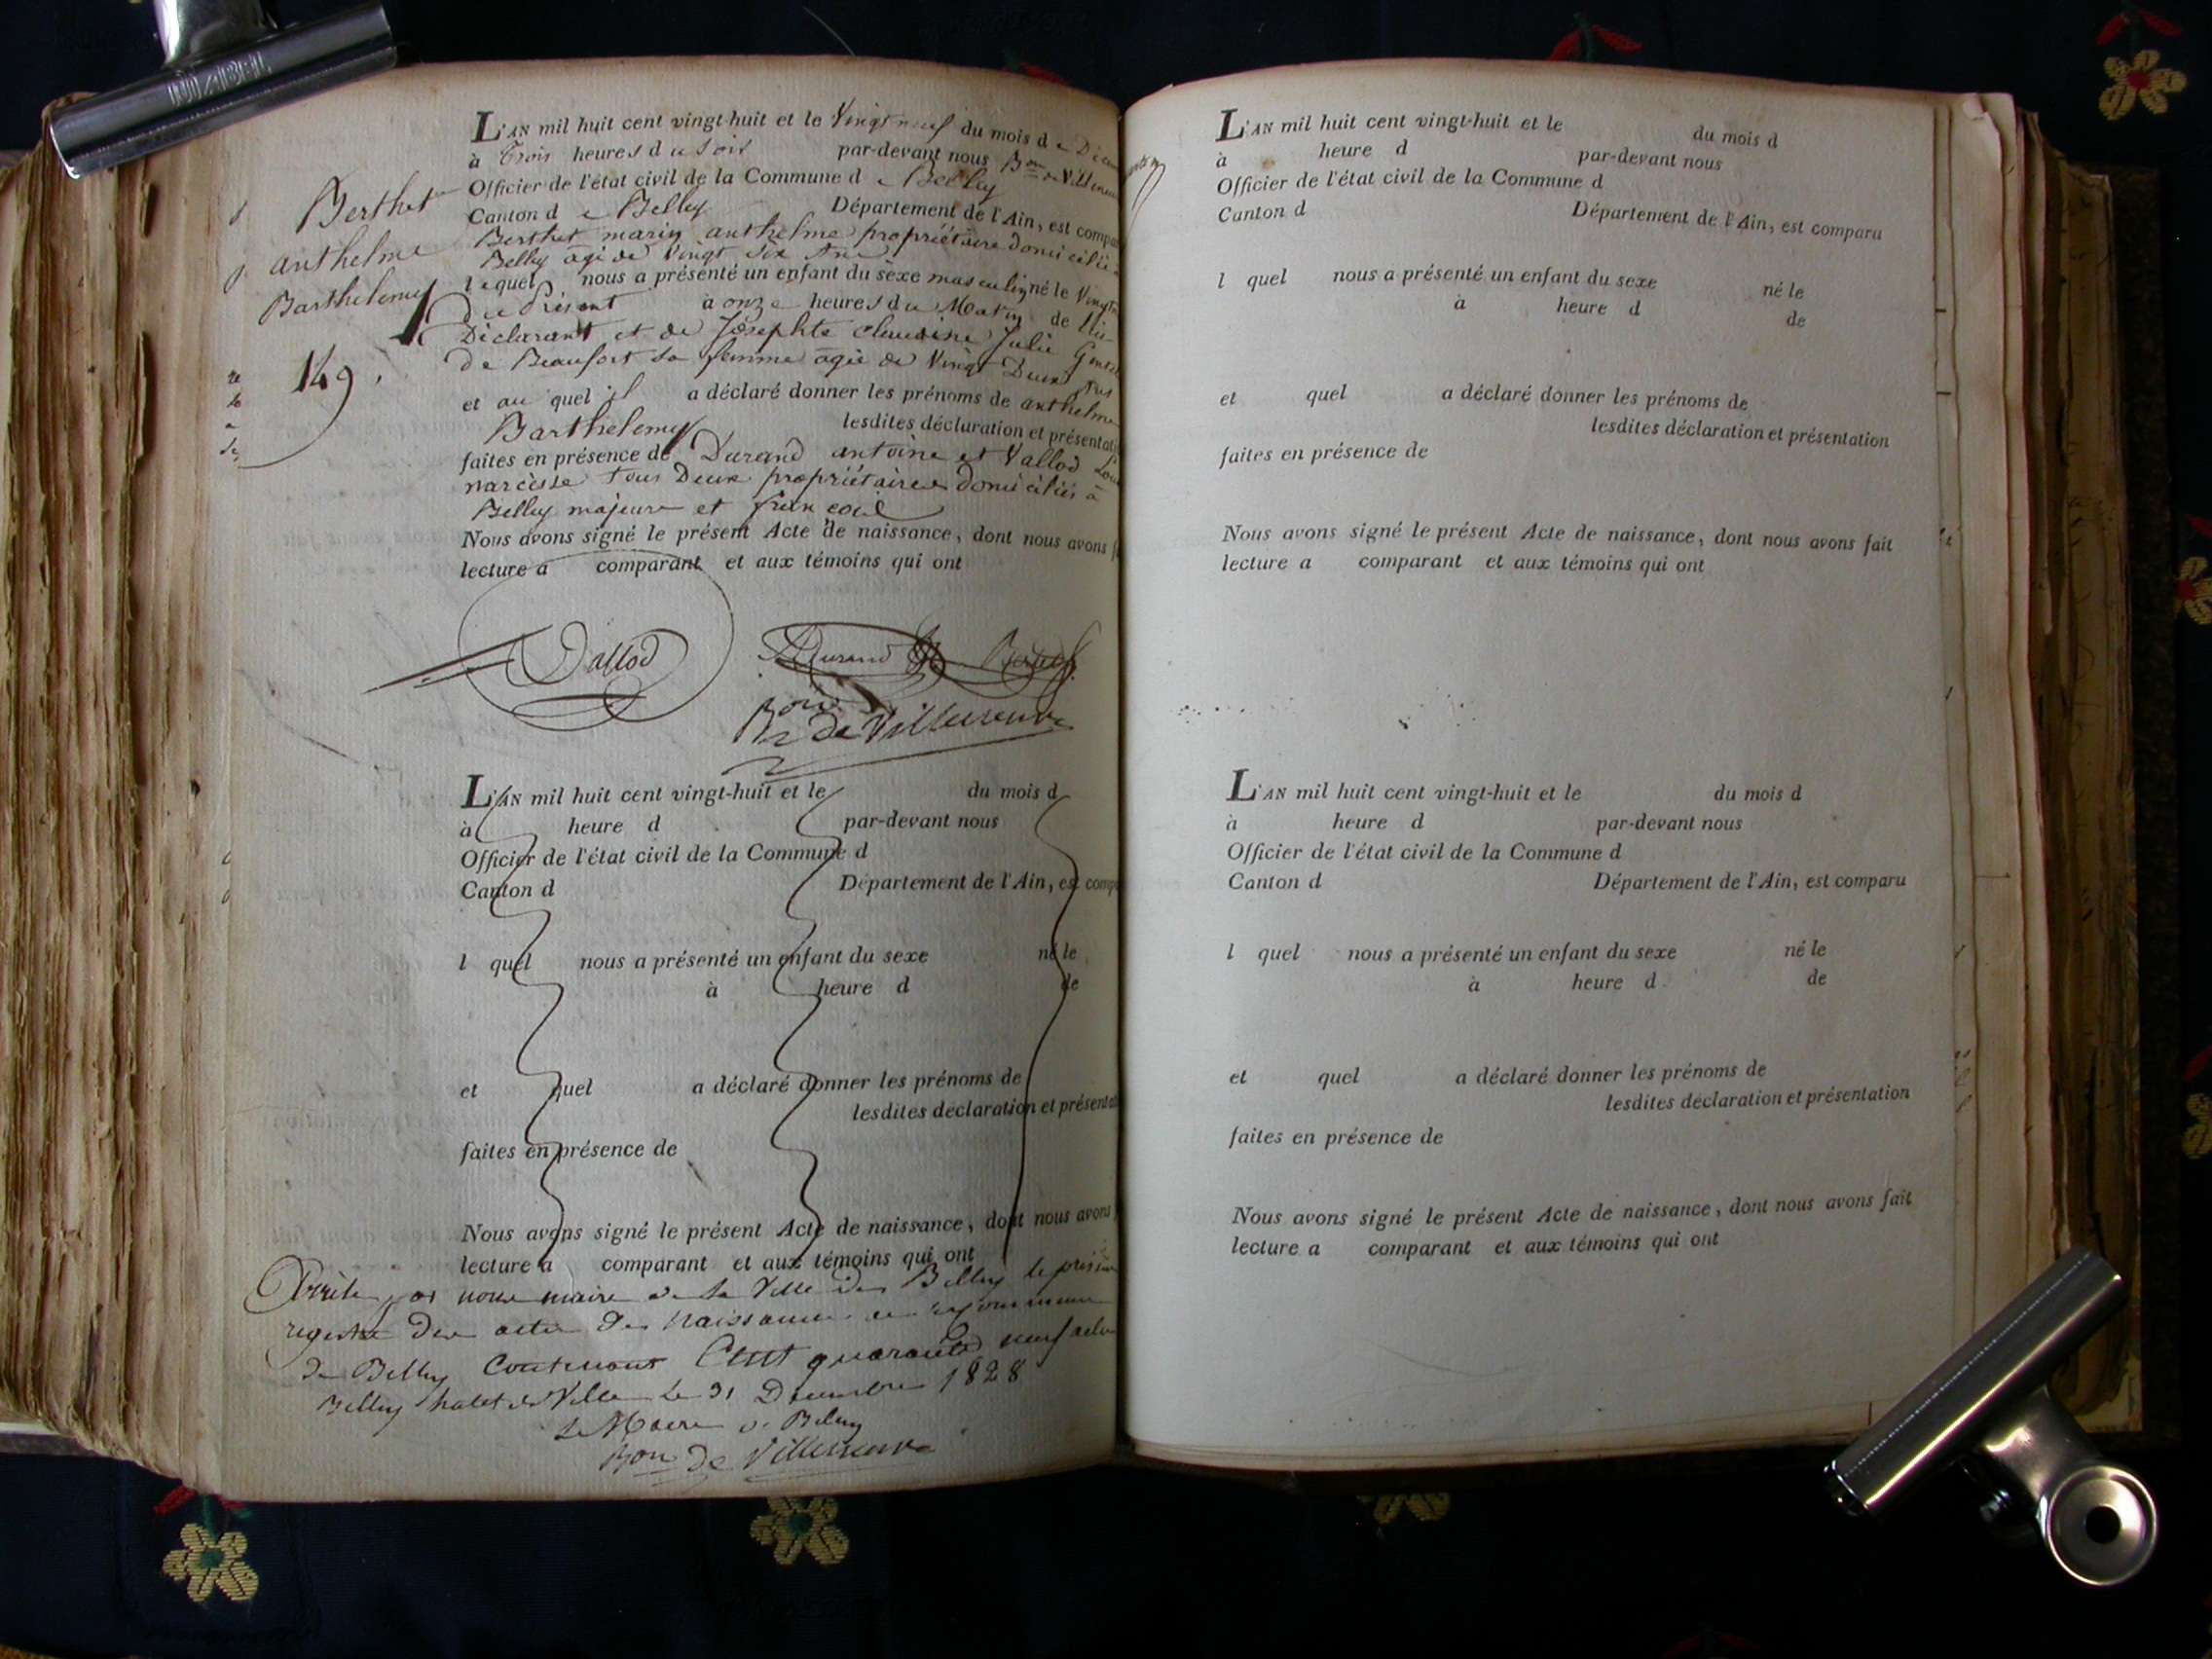 L'AN mil huit cent vingt-huit et le Vingt neuf du mois de
à Trois heures du Soir par-devant nous Bon de Villeneuve
Officier de l'état civil de la Commune de Belley
Canton de Belley Département de l'Ain, est
Berthet marin anthelme propriétaire domicilié
Belley agé de Vingt Six Ans
lequel nous a présenté un enfant du sexe masculin né le
Du Présent à onze heures du Matin de lui
Déclarant et de Josephte claudine Julie
de Beaufort sa femme agée de Vingt Deux Ans
et au quel il a déclaré donner les prénoms de anthelme
Barthelemy lesdites déclaration et
faites en présence de Durand antoine et Vallod
narcisse tous Deux propriétaires domiciliés à
Belley majeurs et
Nous avons signé le présent Acte de naissance, dont nous avons
lecture a comparant et aux témoins qui ont
Berthet
anthelme
Barthelemy
149
Vallod Durand
Bon de Villeneuve
L'AN mil huit cent vingt-huit et le du mois d
à heure d par-devant nous
Officier de l'état civil de la Commune d
Canton d Département de l'Ain, est
l quel nous a présenté un enfant du sexe né le
à heure d de
et quel a déclaré donner les prénoms de
lesdites déclaration et
faites en présence de
Nous avons signé le présent Acte de naissance, dont nous avons
lecture a comparant et aux témoins qui ont
Arrêté par nous maire de la Ville de Belley le présent
registre des actes de Naissance de la commune
de Belley Contenant Cent quarante neuf actes
Belley hotel de Ville le 31 Decembre 1828
Le Maire de Belley
Bon de Villeneuve
L'AN mil huit cent vingt-huit et le du mois d
à heure d par-devant nous
Officier de l'état civil de la Commune d
Canton d Département de l'Ain, est comparu
l quel nous a présenté un enfant du sexe né le
à heure d de
et quel a déclaré donner les prénoms de
lesdites déclaration et présentation
faites en présence de
Nous avons signé le présent Acte de naissance, dont nous avons fait
lecture a comparant et aux témoins qui ont
L'AN mil huit cent vingt-huit et le du mois d
à heure d par-devant nous
Officier de l'état civil de la Commune d
Canton d Département de l'Ain, est comparu
l quel nous a présenté un enfant du sexe né le
à heure d de
et quel a déclaré donner les prénoms de
lesdites déclaration et présentation
faites en présence de
Nous avons signé le présent Acte de naissance, dont nous avons fait
lecture a comparant et aux témoins qui ont